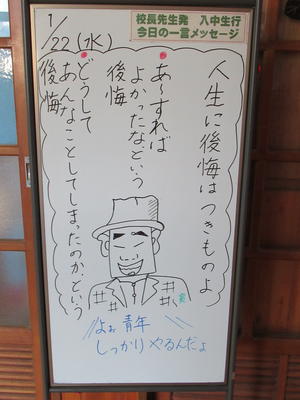 校長先生発　入中生行
今日の一言メッセージ
1/22(水)
人生に後悔はつきものよ
あ〜すれば
よかったなどという
後悔
どうして
あんなことしてしまったのか、という
後悔
よぉ 青年
しっかりやるんだょ